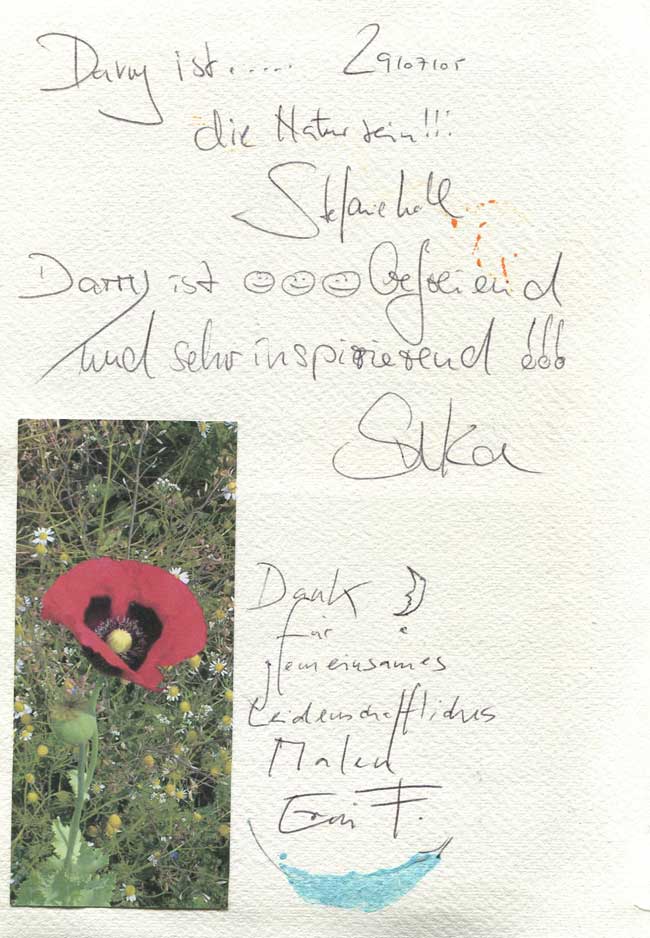 Darry ist..... 29/07/05
die Natur sein!!!
Stefanie
Darry ist ☺☺☺ befreiend
und sehr inspirierend !!!
Silka
Dank
für
gemeinsames
Leidenschaftliches
Malen
F.